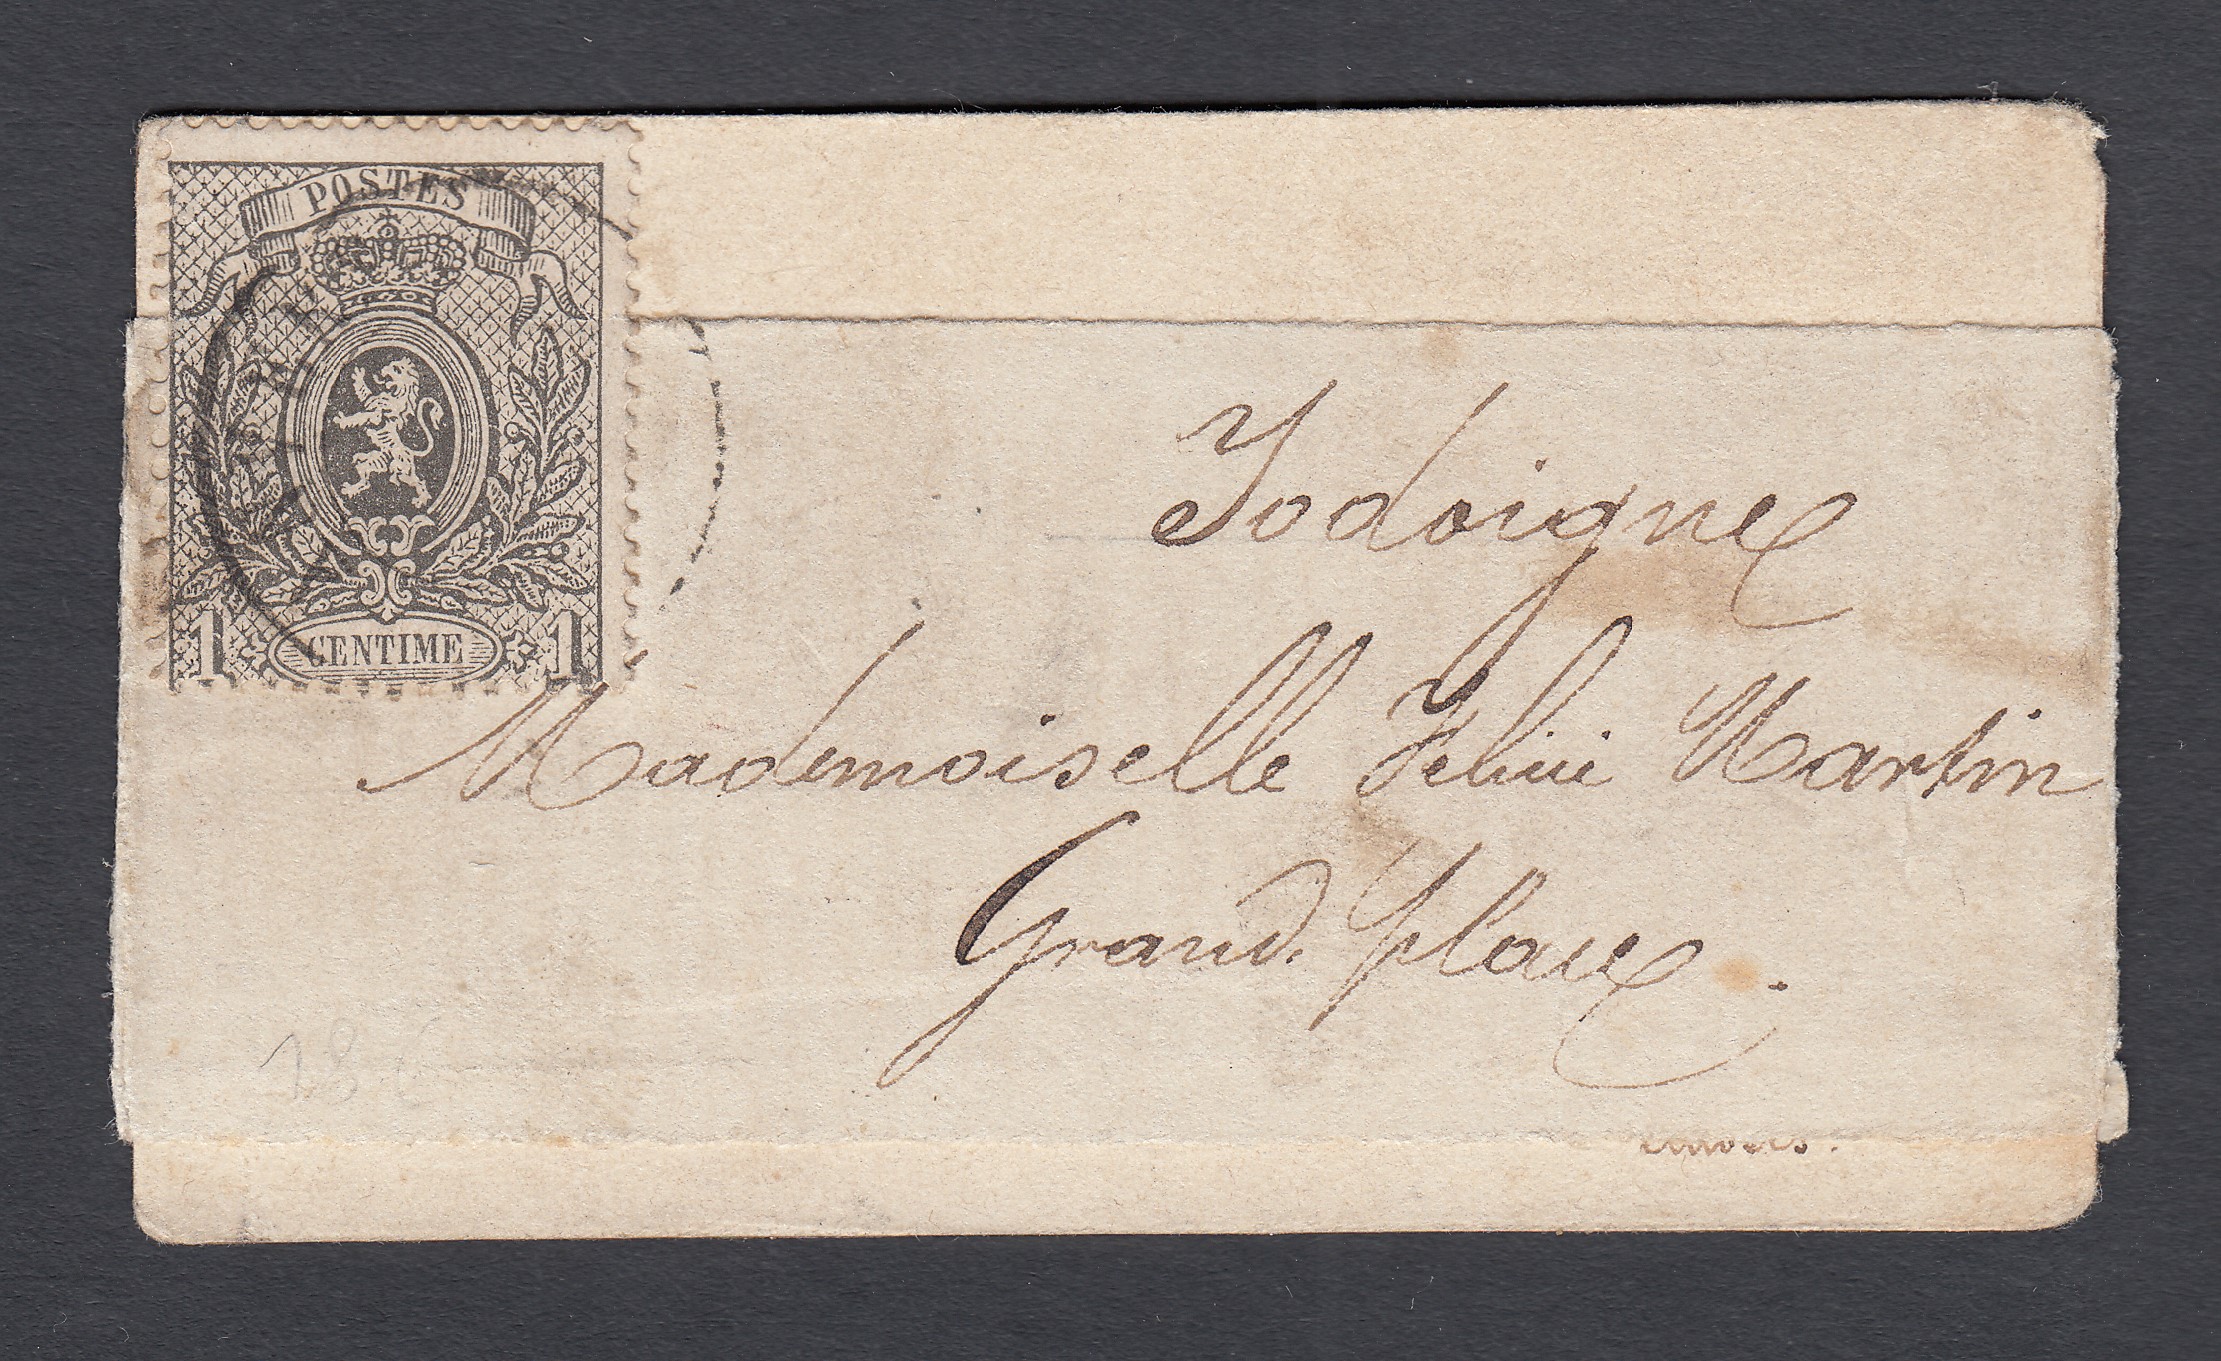 POSTES
1 CENTIME 1
Jodoigne
Mademoiselle Felicie Martin
Grand Place.
18 c